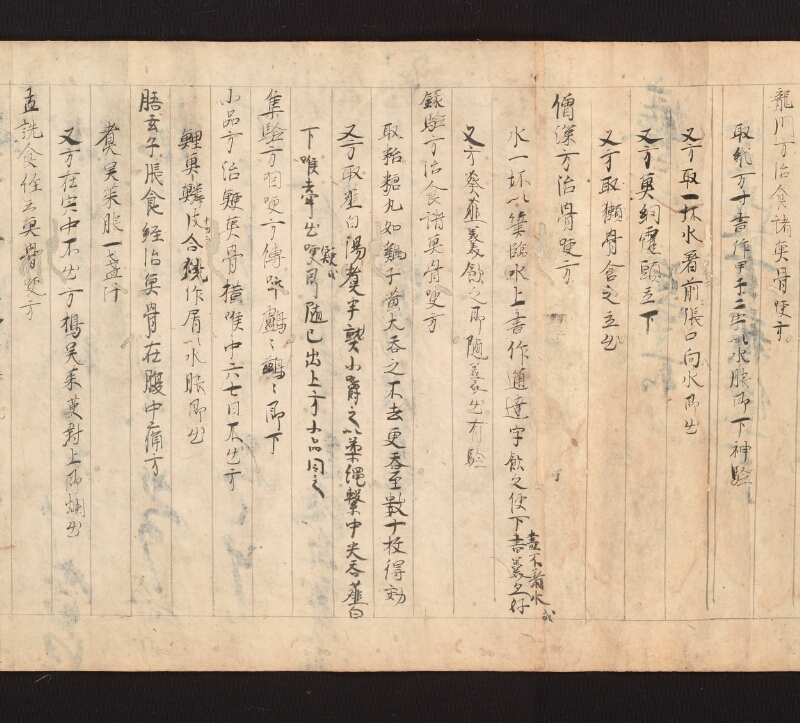 龍門方治食諸魚骨哽方
取紙方寸書作甲子二字以水服即下神驗
又方取一坏水着前張口向水即出
又方魚網覆頭立下
又方取獺骨含之立出
僧深方治骨哽方
水一坏以筆臨水上書作通達字飲之便下
書不着水
又方葵薤羹飲之即隨羹出有驗
録驗方治食諸魚骨哽方
取飴糖丸如鷄子黄大吞之不去更吞至數十枚得効
又方取薤白湯煮半熟小嚼之以柔繩繫中央吞薤白
下喉牽出哽即隨已出上方小品同之
集驗方咽哽方傳呼鸕々鷀々即下
小品方治鯁魚骨橫喉中六七日不出方
鯉魚鱗皮合燒作屑以水服即出
膳玄子張食經治魚骨在腹中痛方
煮吳茱服一盞汁
又方在宍中不出方搗吳茱萸封上即爛出
孟詵食經云魚骨哽方